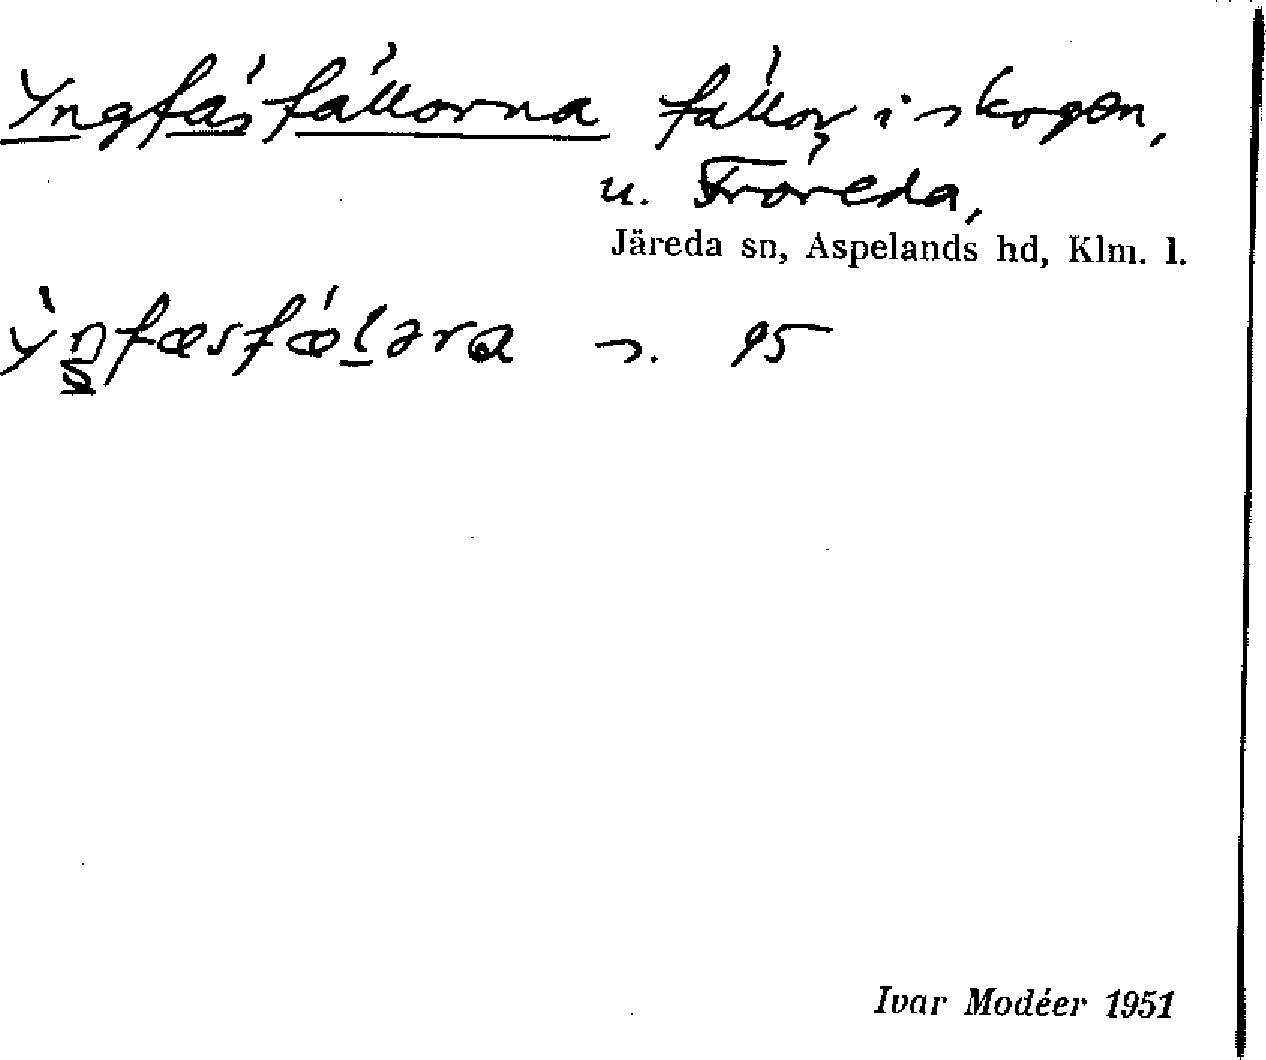 Yngfäsfällorna fällor i skogen,
u. Fröreda,
Järeda sn, Aspelands hd, Klm. l.
s. 95
Ivar Modéer 1951